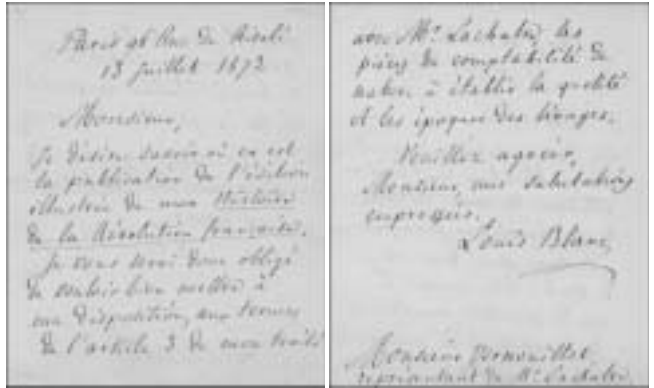 Paris 96 Rue de Rivoli
13 juillet 1872.
Monsieur,
Je désire savoir où en est
la publication de l'édition
illustrée de mon Histoire
de la Révolution française.
Je vous serai donc obligé
de vouloir bien mettre à
ma disposition, aux termes
de l'article 3 de mon traité
avec Mr. Lachatre, les
pièces de comptabilité de
nature à établir la quotité
et les époques des tirages.
Veuillez agréer,
Monsieur, mes salutations
empressées.
Louis Blanc
Monsieur Vernouillet
représentant de Mr. Lachatre.